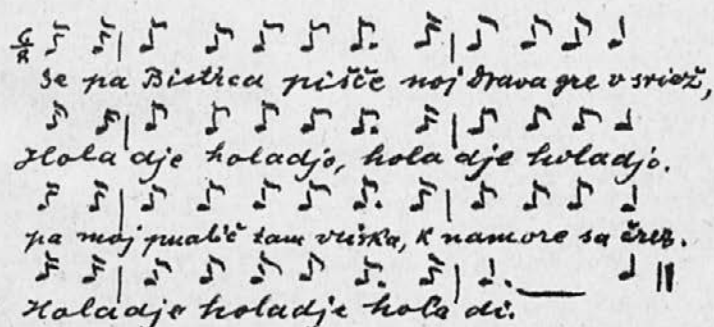 6/8
Se pa Bistrca pišče noj Drava gre v sriež,
Hola dje holadjo, hola dje holadjo.
pa moj pualič tam vriska, k namore sa črez.
Holadje holadje hola di.